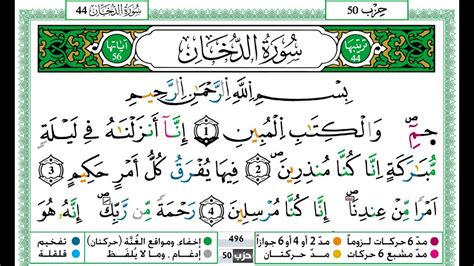 حِزْب 50
سُورَةُ الدُّخَانِ 44
ترتيبها 44 سُورَةُ الدُّخَانِ آياتها 56
بِسْمِ اللَّهِ الرَّحْمَٰنِ الرَّحِيمِ
حمٓ وَالْكِتَٰبِ الْمُبِينِ 1 إِنَّآ أَنزَلْنَٰهُ فِي لَيْلَةٖ
مُّبَٰرَكَةٍ اِنَّا كُنَّا مُنذِرِينَ 2 فِيهَا يُفْرَقُ كُلُّ أَمْرٍ حَكِيمٍ 3
اَمْراٗ مِّنْ عِندِنَآ إِنَّا كُنَّا مُرْسِلِينَ 4 رَحْمَةٗ مِّن رَّبِّكَ إِنَّهُۥ هُوَ
مدّ 6 حركات لزوماً مدّ 2 أو 4 أو 6 جوازاً 496 إخفاء، ومواقع الغُنَّة (حركتان) تفخيم
مدّ مشبع 6 حركات مدّ حركتان حزب 50 إدغام، وما لا يُلفَظ قلقلة